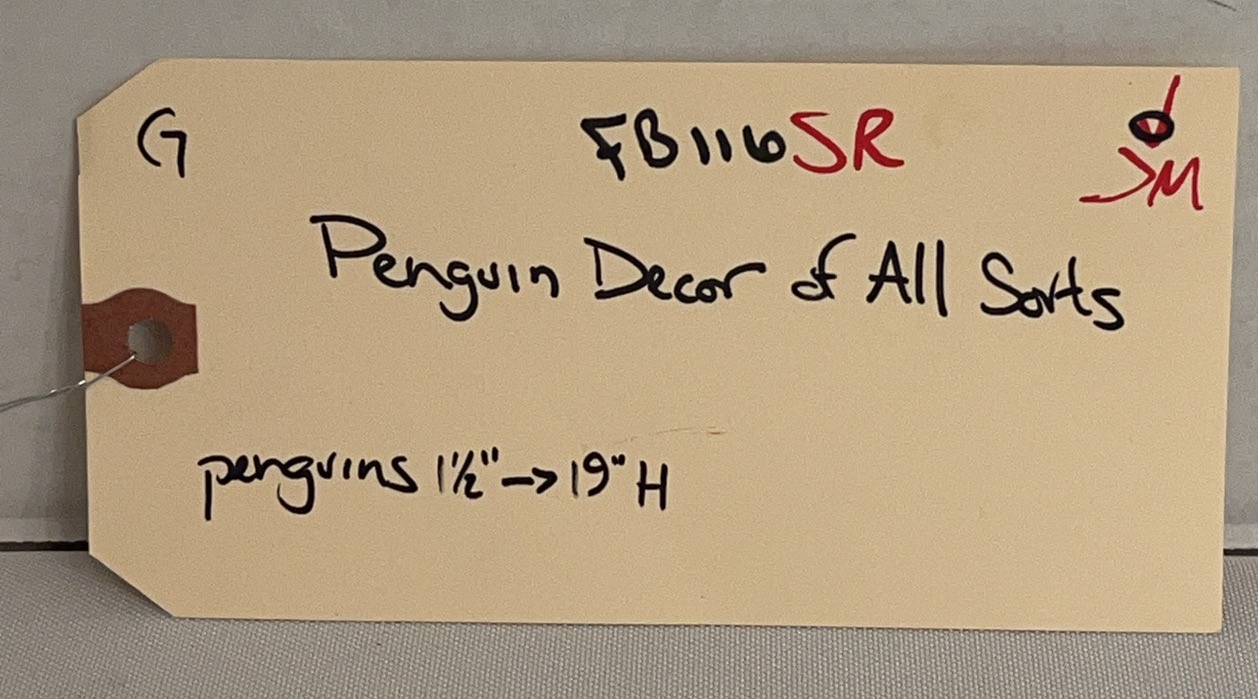 G FB116SR
JM
Penguin Decor of All Sorts
penguins 1½" → 19" H